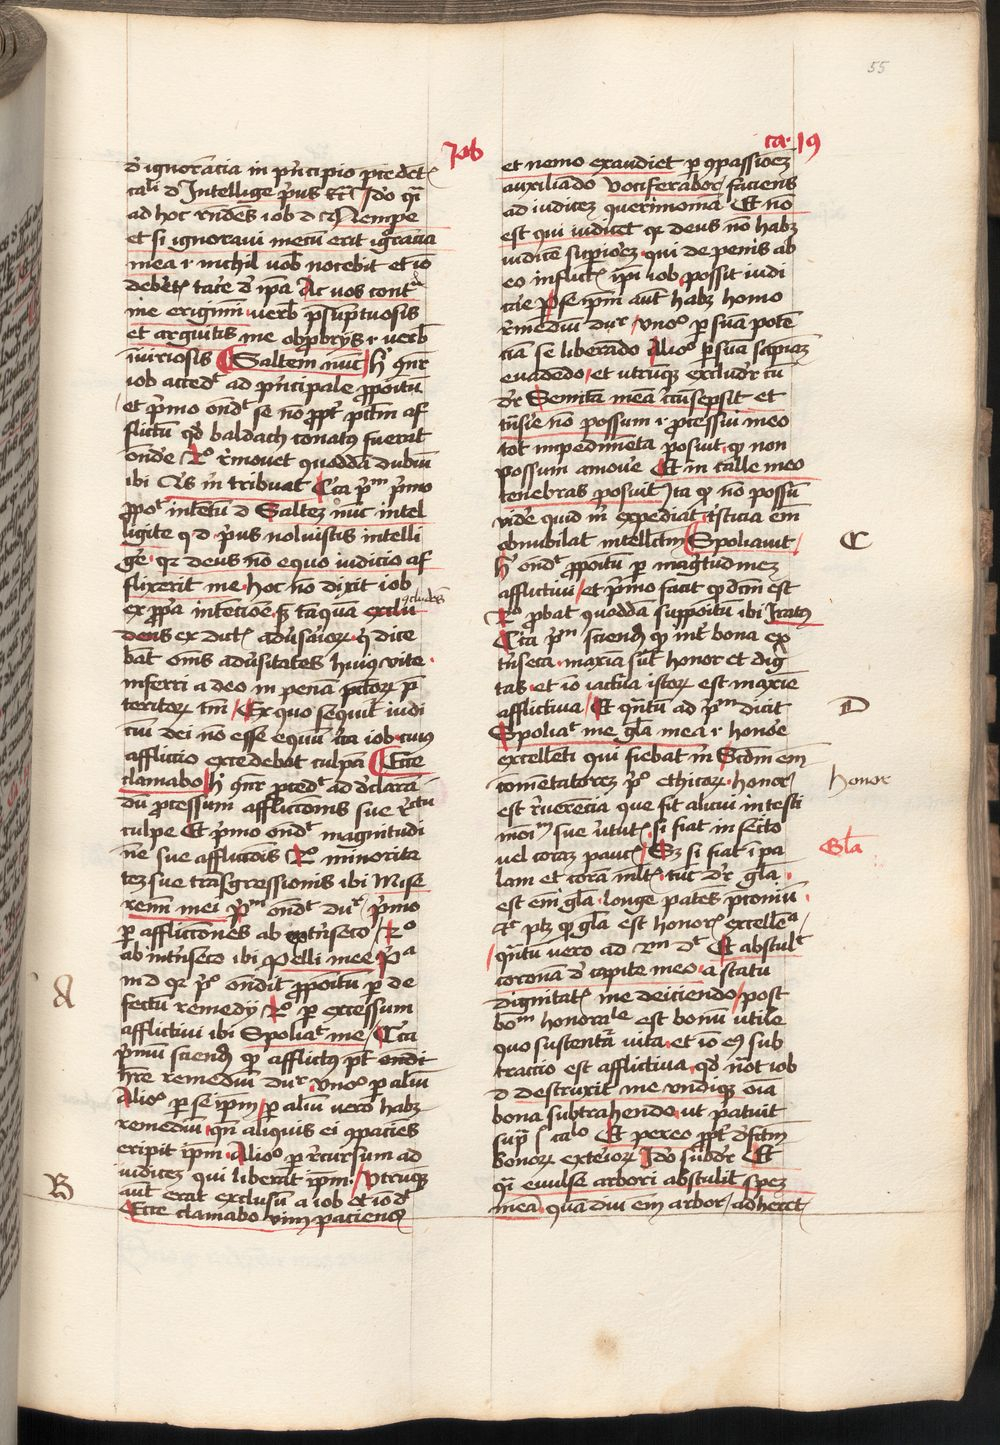 55
Job
ca. 19
d ignorācia in pncipio pcedēt
cali d Intellige pus Ido qn
ad hoc rndēs iob d Nempe
et si ignoravi mecū erit ignācia
mea ⁊ nichil vob nocebit et iō
debetz tace d ipā Ac vos contᵃ
me erigimī verb psūptuosis
et arguitis me obprbrijs ⁊ verb
iniriosis Saltem nūc hͨ qnr
iob accedᵗ ad pncipale ppoitum
et pmo ondᵗ se nō ppt pctm af
flictū qd baldach conatus fuerat
onde 2º rmovet quoddā dubiū
ibi Qs m tribuat Cca pᵐ pmo
ppoᵗ intentū d Saltez nūc intel
ligite q d pus noluistis intelli
ge qr deus nō equo iudicio af
flixerit me hoc nō dixit iob
ex ppa intenciōe sz tāquā exclu
cludēs
dens ex dictz adusarior qͥ dice
bāt oms adusitates huiꝯ vite
inferri a deo in penā pctor p
teritor tm Ex quo sequitᷣ iudi
ciū dei nō esse equū cca iob cuiꝯ
afflictio excedebat culpā Ecce
clamabo hͨ qnr pcedᵗ ad dclarā
dū pcessum afflictionis sue rᶜᵗᵘ
culpe Et pmo ondᵗ magnitudi
nē sue afflictiōis 2º minorita
tez sue trāsgressionis ibi Mise
remī mei pᵐ ondᵗ du pmo
p afflicciones ab exnseco 2º
ab intnseco ibi Pelli mee pᵃ
in d qr pº ondit ppoitum p de
fectū remedij 2º p excessum
afflictiui ibi Spoliaᵗ me Cca
A
pmū sciend qꝫ afflictus pt ondi
hre remediū dur vnoº p aliū
Alioº p se ipm p aliū vero habz
remediū qn aliquis ei 9pacies
eripit ipm Alioº p rcursum ad
iudicez qui liberat ipm Vtrūqꝫ
B
aūt erat exclusū a iob et iō dᷤ
Ecce clamabo vim paciens
et nemo exaudiet p 9passioez
auxiliādo Vociferabor faciens
ad iudicez querimoniā Et nō
est qui iudicet qr deus nō habz
iudicē supiorez qui de penis ab
eo inflictz ipi iob possit iudi
cae P se ipm aūt habz homo
rmediū dur vnoº p suā potē
ciā se liberādo Alioº p suā sapiāz
evadēdo et utrūqꝫ excludr cū
dr Semitā meā ccūsepsit et
tnsire nō possum ⁊ pcessui meo
tot impedimēta posuit qꝫ non
possum amove Et in calle meo
tenebras posuit Ita qꝫ nō possū
vide quid m expediat tsticia em
obnubilat intellctm Spoliauit
C
hͨ ondᵗ ppoitum p magtudinez
afflictiui et pmo facit qd dcm est
2º pbat quodda suppoitum ibi Iratus
Cca pᵐ sciend qꝫ int bona ex
tnseca maxīa sūt honor et dig
tas et iō iactura istor est maxie
afflictiva Et qntū ad pᵐ dicit
D
Spoliaᵗ me gla mea ⁊ honoe
excellēti qui fiebat m Scdm em
comētatorez pº ethicor honor
honor
est rverēcia que fit alicui in testi
moiᵐ sue vtutz si fiat in secto
vel coraz paucz Sz si fiat i pa
Gla
lam et corā mltz tūc dr gla
est em gla longe patēs pconiū
qꝫ gla est honorz excellēᵃ
qntū vero ad 2m dᵗ Et abstulᵗ
coronā d capite meo a statu
dignitatz me deiciendo post
boᵐ honoraᵉ est bonū utile
quo sustentā vita et iō eꝯ sub
tractio est afflictiva qd nōt iob
d destruxit me vndiqꝫ oīa
bona subtrahendo ut patuit
supᵃ Et pereo ppt dfctm
bonor exteior Ido subdr Et
qn evulse arbori abstulit spez
meā quā diu em arbor adheret